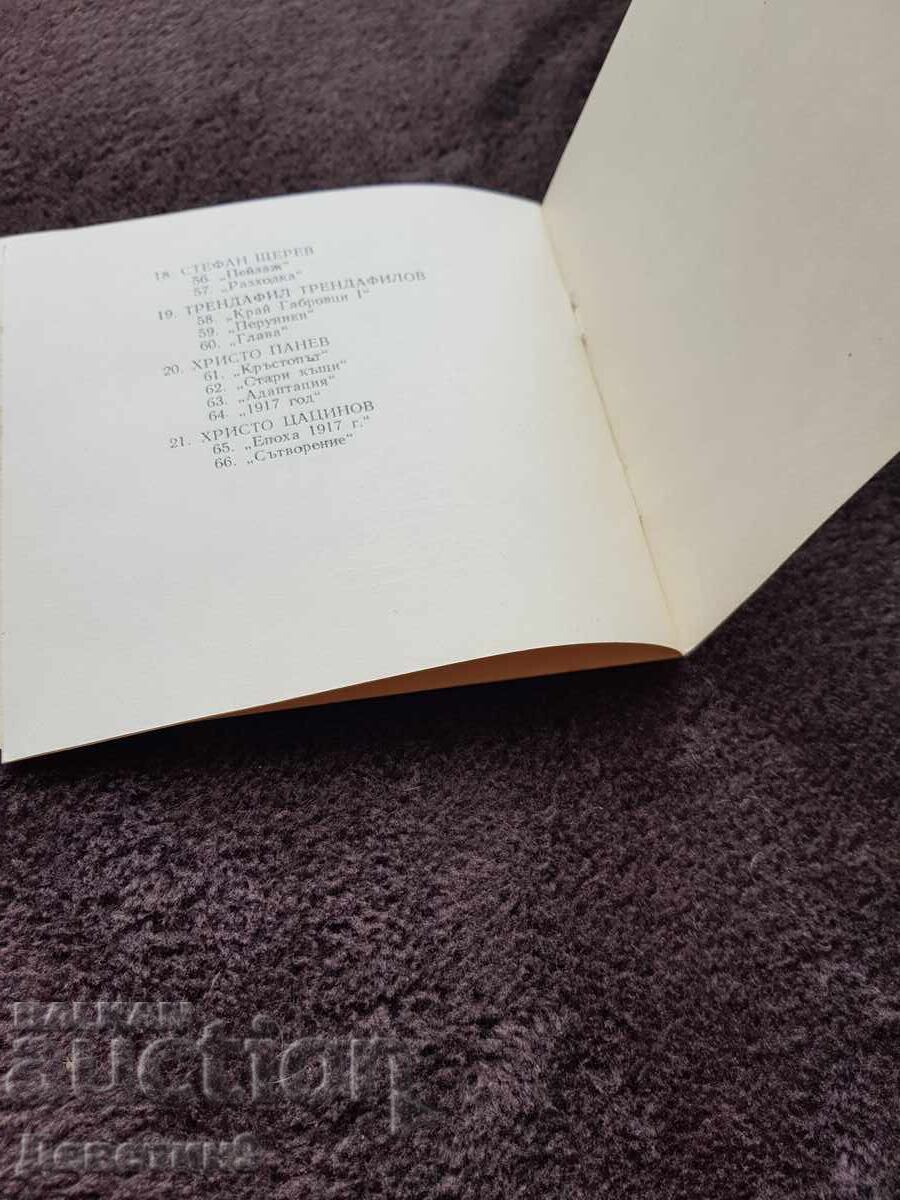 18. СТЕФАН ЩЕРЕВ
56. „Пейзаж“
57. „Разходка“
19. ТРЕНДАФИЛ ТРЕНДАФИЛОВ
58. „Край Габровци I“
59. „Перуники“
60. „Глава“
20. ХРИСТО ПАНЕВ
61. „Кръстопът“
62. „Стари къщи“
63. „Адаптация“
64. „1917 год“
21. ХРИСТО ЦАЦИНОВ
65. „Епоха 1917 г.“
66. „Сътворение“
BALKAN
auction
Деветик3